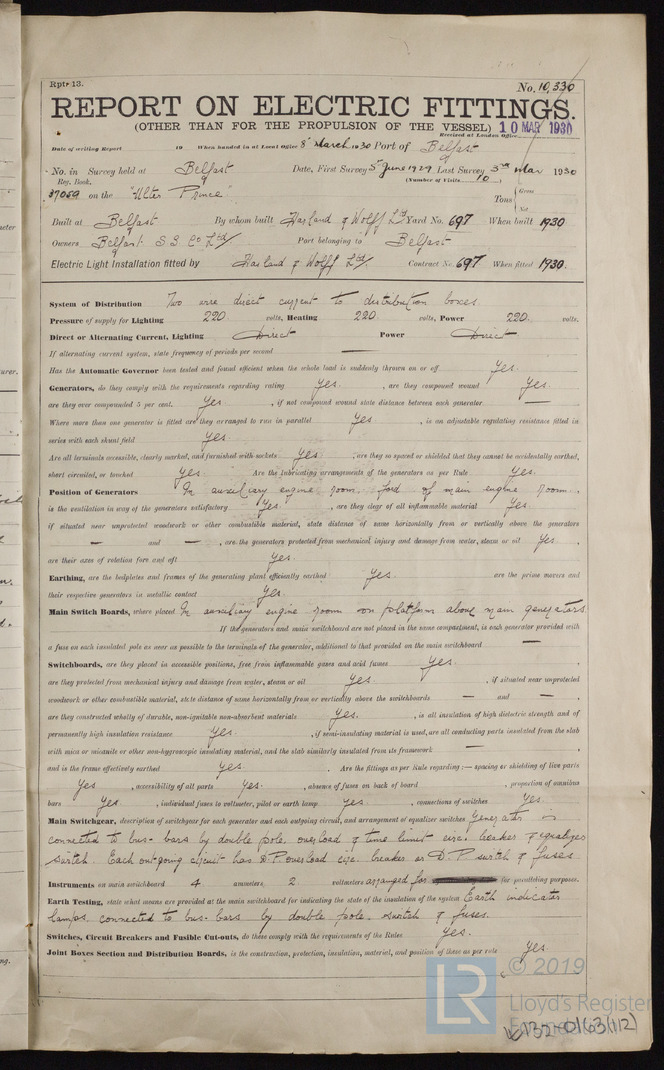 Rptr 13.
No. 10,330
REPORT ON ELECTRIC FITTINGS.
(OTHER THAN FOR THE PROPULSION OF THE VESSEL)
Received at London Office
10 MAR 1930
Date of writing Report 19 When handed in at Local Office 8th March 1930 Port of Belfast
No. in Survey held at Belfast Date, First Survey 5th June 1929 Last Survey 3rd Mar 1930
Reg. Book. (Number of Visits 10)
37059 on the "Ulster Prince" Tons { Gross
Net
Built at Belfast By whom built Harland & Wolff Ltd Yard No. 697 When built 1930
Owners Belfast S.S. Co Ltd Port belonging to Belfast
Electric Light Installation fitted by Harland & Wolff Ltd. Contract No. 697 When fitted 1930.
System of Distribution Two wire direct current to distribution boxes.
Pressure of supply for Lighting 220 volts, Heating 220 volts, Power 220 volts.
Direct or Alternating Current, Lighting Direct Power Direct
If alternating current system, state frequency of periods per second —
Has the Automatic Governor been tested and found efficient when the whole load is suddenly thrown on or off Yes.
Generators, do they comply with the requirements regarding rating Yes. , are they compound wound Yes.
are they over compounded 5 per cent. Yes. , if not compound wound state distance between each generator —
Where more than one generator is fitted are they arranged to run in parallel Yes. , is an adjustable regulating resistance fitted in
series with each shunt field Yes.
Are all terminals accessible, clearly marked, and furnished with sockets Yes. , are they so spaced or shielded that they cannot be accidentally earthed,
short circuited, or touched Yes. Are the lubricating arrangements of the generators as per Rule Yes.
Position of Generators In auxiliary engine room. ford of main engine room.
is the ventilation in way of the generators satisfactory Yes. , are they clear of all inflammable material Yes.
if situated near unprotected woodwork or other combustible material, state distance of same horizontally from or vertically above the generators
— and — , are the generators protected from mechanical injury and damage from water, steam or oil Yes.
are their axes of rotation fore and aft Yes.
Earthing, are the bedplates and frames of the generating plant efficiently earthed Yes. are the prime movers and
their respective generators in metallic contact Yes.
Main Switch Boards, where placed In auxiliary engine room on platform above main generators
If the generators and main switchboard are not placed in the same compartment, is each generator provided with
a fuse on each insulated pole as near as possible to the terminals of the generator, additional to that provided on the main switchboard —
Switchboards, are they placed in accessible positions, free from inflammable gases and acid fumes Yes.
are they protected from mechanical injury and damage from water, steam or oil Yes. , if situated near unprotected
woodwork or other combustible material, state distance of same horizontally from or vertically above the switchboards — and —
are they constructed wholly of durable, non-ignitable non-absorbent materials Yes. , is all insulation of high dielectric strength and of
permanently high insulation resistance Yes. , if semi-insulating material is used, are all conducting parts insulated from the slab
with mica or micanite or other non-hygroscopic insulating material, and the slab similarly insulated from its framework —
and is the frame effectively earthed Yes. Are the fittings as per Rule regarding:— spacing or shielding of live parts
Yes , accessibility of all parts Yes. , absence of fuses on back of board , proportion of omnibus
bars Yes. , individual fuses to voltmeter, pilot or earth lamp Yes. , connections of switches Yes.
Main Switchgear, description of switchgear for each generator and each outgoing circuit, and arrangement of equalizer switches Generator is
connected to bus-bars by double pole, overload & time limit circ. breaker & equalizer
switch. Each outgoing circuit has D.P. overload circ. breaker or D.P. switch & fuses
Instruments on main switchboard 4 ammeters 2 voltmeters arranged for for paralleling purposes.
Earth Testing, state what means are provided at the main switchboard for indicating the state of the insulation of the system Earth indicator
lamps, connected to bus-bars by double pole switch & fuses.
Switches, Circuit Breakers and Fusible Cut-outs, do these comply with the requirements of the Rules Yes.
Joint Boxes Section and Distribution Boards, is the construction, protection, insulation, material, and position of these as per rule Yes
LR © 2019
Lloyd's Register
Foundation
W132-0163(1/2)